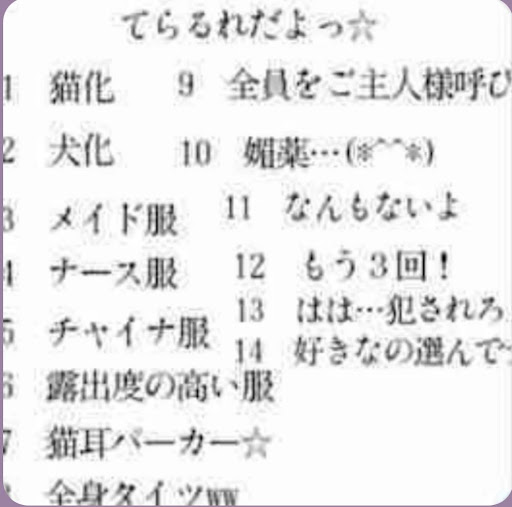 てらるれだよっ☆
1 猫化
2 犬化
3 メイド服
4 ナース服
5 チャイナ服
6 露出度の高い服
7 猫耳パーカー☆
全身タイツww
9 全員をご主人様呼び
10 媚薬…(*^^*)
11 なんもないよ
12 もう3回！
13 はは…犯されろ
14 好きなの選んで